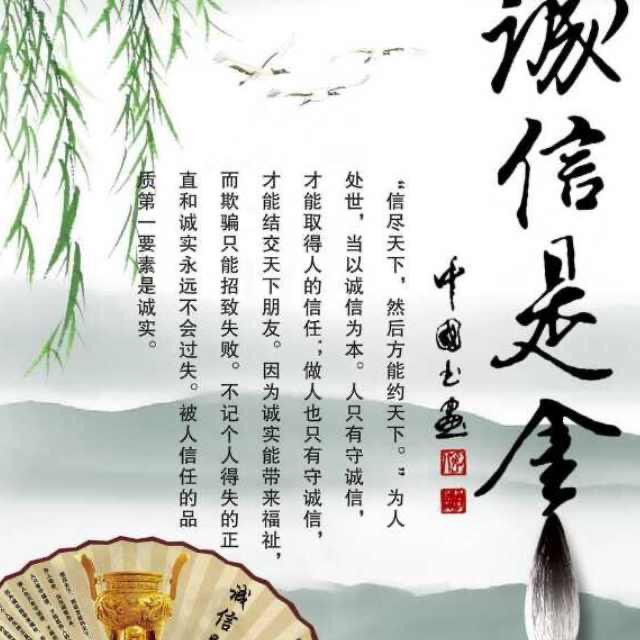 诚信是金
中国书画
“信尽天下，然后方能约天下。”为人
处世，当以诚信为本。人只有守诚信，
才能取得人的信任；做人也只有守诚信，
才能结交天下朋友。因为诚实能带来福祉，
而欺骗只能招致失败。不记个人得失的正
直和诚实永远不会过失。被人信任的品
质第一要素是诚实。
诚信